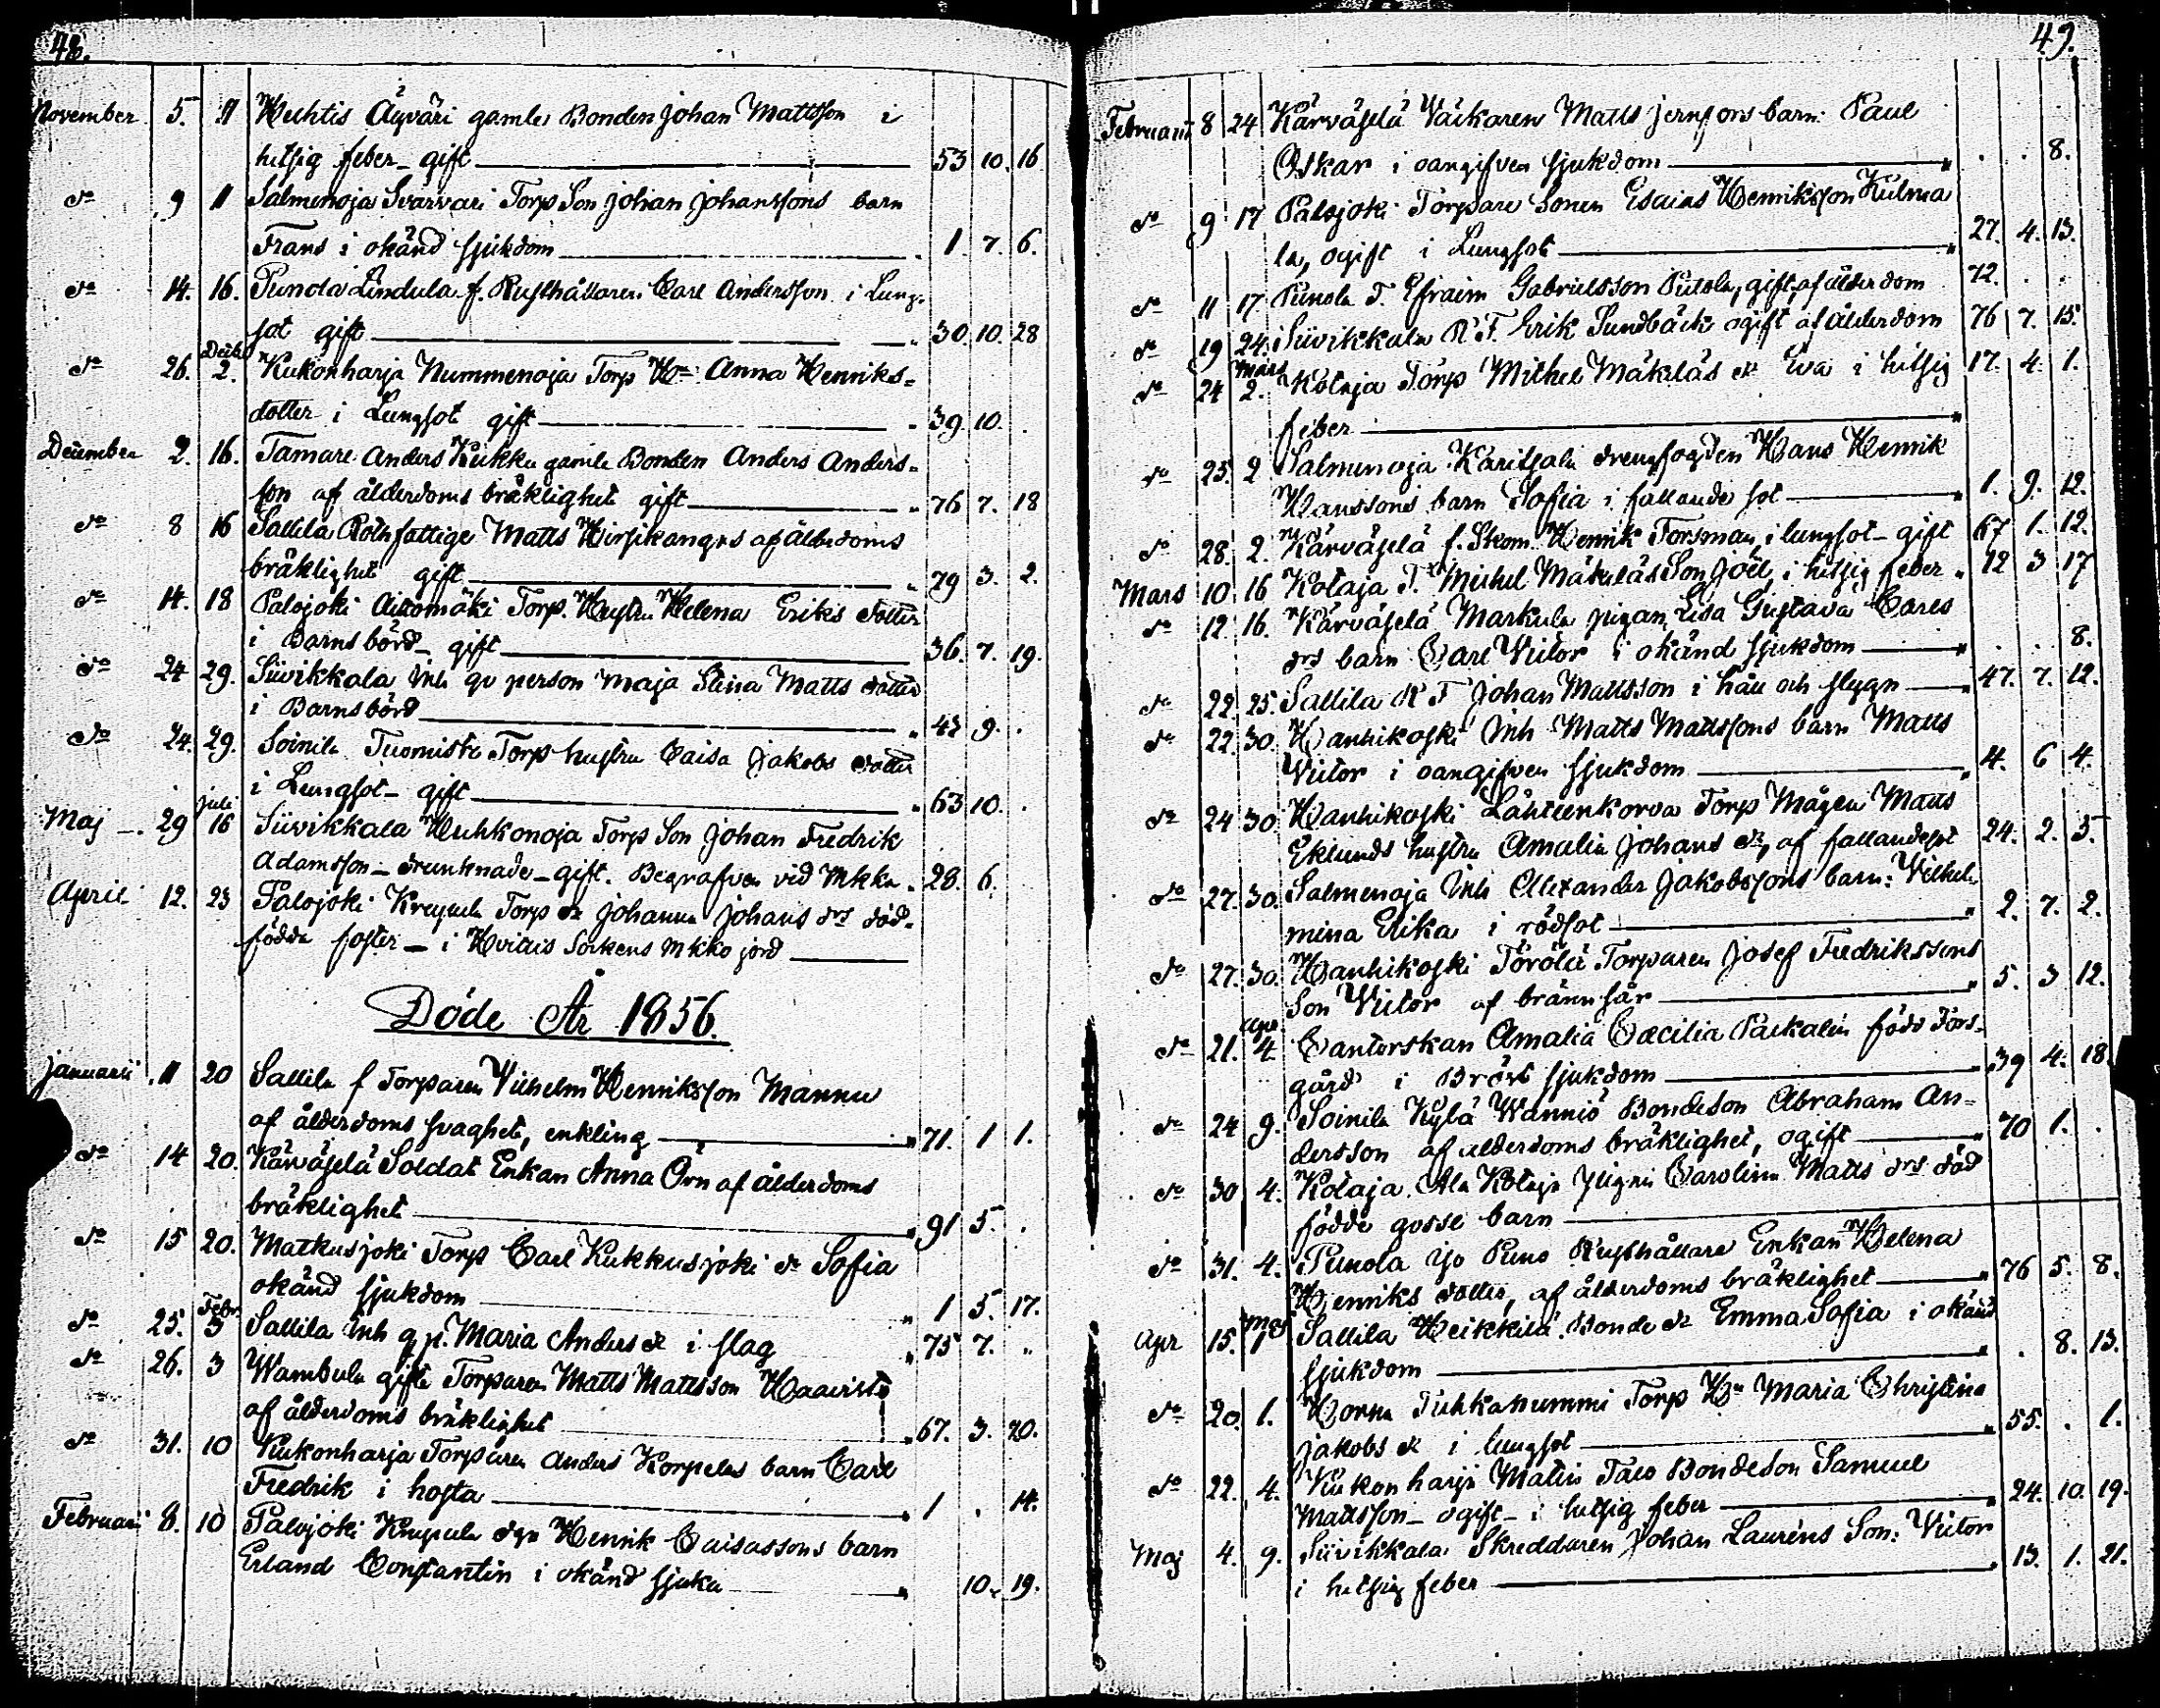 48.
November 5. 11 Huhtis Äyväri gamle Bonden Johan Mattsson i
hetsig feber - gift 53 10. 16
do 9 11 Salmenoja Svärvari Torp Son Johan Johanssons barn
Frans i okänd sjukdom 1. 7. 6.
do 14. 16. Punola Lindula f. Rusthållaren Carl Andersson i Lung-
sot gift 30. 10. 28
do 26. Decb 2. Kukonharja Nummenoja Torp Hu Anna Henriks-
dotter i Lungsot gift 39 10. .
December 2. 16. Tamare Anders Kukku gamle Bonden Anders Anders-
son af ålderdoms bräklighet gift 76 7. 18
do 8 16 Sallila Rotefattige Matts Hirsikangas af ålderdoms
bräklighet gift 79 3. 2.
do 14. 18 Palojoki Aittomäki Torp. Hustru Helena Eriks dotter
i Barnsbörd - gift 36. 7. 19.
do 24 29. Siivikkala Inh qv person Maja Stina Matts dotter
i Barnsbörd 42 9. .
do 24. 29. Soinila Tuomisto Torp hustru Caisa Jakobs dotter
i Lungsot - gift 63 10. .
Maj 29 juli 16 Siivikkala Huhkonoja Torp Son Johan Fredrik
Adamsson - drunknade - gift. Begrafven vid Mkko 28. 6.
April 12. 23 Palojoki Krepula Torp dr Johanna Johans drs död-
födda foster - i Hvittis Sockens Mkko jord
Döde År 1856.
Januarii 11 20 Sallila f Torparen Vilhelm Henriksson Mannu
af ålderdoms svaghet, enkling 71. 1 1.
do 14 20. Kärväselä Soldat Enkan Anna Örn af ålderdoms
bräklighet 91 5. .
do 15 20. Matkusjoki Torp Carl Kukkusjoki dr Sofia
okänd sjukdom 1 5. 17.
do 25. Febr 3 Sallila Inh q p. Maria Anders dr i slag 75 7. "
do 26. 3 Wambula gifte Torparen Matts Mattsson Haavisto
af ålderdoms bräklighet 67. 3. 20.
do 31. 10 Kukonharja Torparen Anders Korpelas barn Carl
Fredrik i hosta 1 . 14.
Februari 8. 10 Palojoki Krepula dgn Henrik Caisassons barn
Erland Constantin i okänd sjuka 10. 19.
49.
Februarii 8 24 Kärväselä Väckaren Matts Jernfors barn: Paul
Oskar i oangifven sjukdom . . 8.
do 9 17 Palojoki Torpare Sonen Esaias Henriksson Kulma
la, ogift i Lungsot 27. 4. 13.
do 11 17 Punola T. Efraim Gabrielsson Putola, gift, af ålderdom 72. . .
do 19 24. Siivikkala R. F. Erik Sundbäck ogift af ålderdom 76 7. 15.
do 24 Mars 2. Kotaja Torp Michel Mäkeläs dr Eva i hetsig 17. 4. 1.
feber
do 25. 2 Salmenoja Karitsala drengfogden Hans Henrik
Hanssons barn Sofia i fallande sot 1. 9. 12.
do 28. 2. Kärväselä f. Skom. Henrik Forsman i lungsot - gift 67 1. 12.
Mars 10. 16 Kotaja T. Michel Mäkeläs Son Joel, i hetsig feber 12 3 17
do 12. 16. Kärväselä Markula pigan Lisa Gustava Carls
drs barn Carl Victor i okänd sjukdom . . 8.
do 22. 25. Sallila R F Johan Mattsson i håll och stygn 47. 7. 12.
do 22. 30. Hanhikoski Inh Matts Mattssons barn Matts
Victor i oangifven sjukdom 4. 6 4.
do 24 30. Hanhikoski Lähteenkorva Torp Mågen Matts
Eklunds hustru Amalia Johans dr, af fallandesot 24. 2. 5.
do 27. 30. Salmenoja Inh Alexander Jakobssons barn: Vilhel
mina Erika i rödsot 2. 7. 2.
do 27. 30. Hanhikoski Törölä Torparen Josef Fredrikssons
Son Victor af brännsår 5. 3 12.
do 21. Apr 4. Cantorskan Amalia Cæcilia Packalén född Fors-
gård i Bröst sjukdom 39 4. 18.
do 24 9. Soinila Kylä Wannio Bondeson Abraham An-
dersson af ålderdoms bräklighet, ogift 70 1. .
do 30 4. Kotaja. Ala Kotaja pigan Carolina Matts drs död
födde gosse barn
do 31. 4. Punola Yso Puno Rusthållare Enkan Helena
Henriks dotter, af ålderdoms bräklighet 76 5. 8.
Apr 15. Maj 1 Sallila Heikkilä Bonde dr Emma Sofia i okänd
sjukdom . 8. 13.
do 20. 1. Horna Tuhkanummi Torp Hu Maria Christina
Jakobs dr i lungsot 55. . 1.
do 22. 4. Kukonharja Matin Talo Bondeson Samuel
Mattsson - ogift - i hetsig feber 24. 10. 19.
Maj 4. 9. Siivikkala Skreddaren Johan Lauréns Son: Victor
i hetsig feber 13. 1. 21.